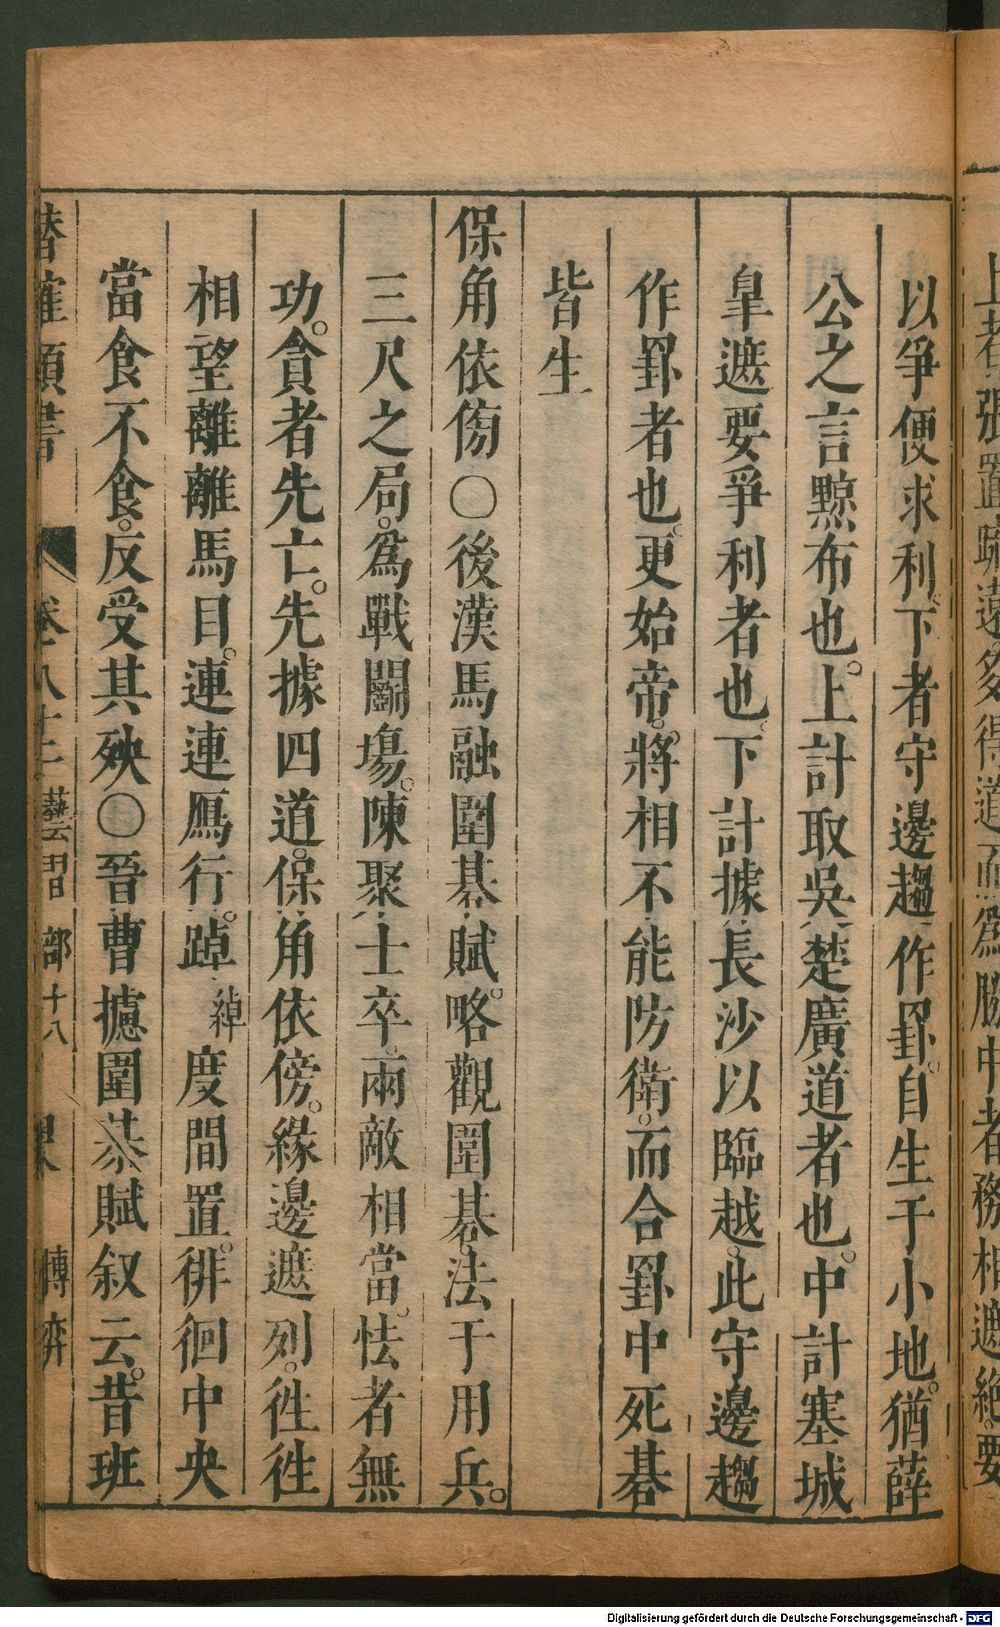 以爭便求利。下者守邊趨作罫。自生于小地。猶薛
公之言黥布也。上計取吳楚廣道者也。中計塞城
臯遮要爭利者也。下計據長沙以臨越。此守邊趨
作罫者也。更始帝。將相不能防衛。而合罫中死碁
皆生
保角依傍〇後漢馬融圍碁賦。略觀圍碁。法于用兵。
三尺之局。爲戰鬭塲。陳聚士卒。兩敵相當。怯者無
功。貪者先亡。先據四道。保角依傍。緣邊遮列。徃徃
相望離離馬目。連連鴈行。踔綽度間置。徘徊中央
當食不食。反受其殃〇晉曹攄圍棊賦叙云。昔班
潛確類書 卷八十二藝習部十八 博弈
上者張置疏遠多得道而爲勝中者務相遮絶。要
Digitalisierung gefördert durch die Deutsche Forschungsgemeinschaft - DFG